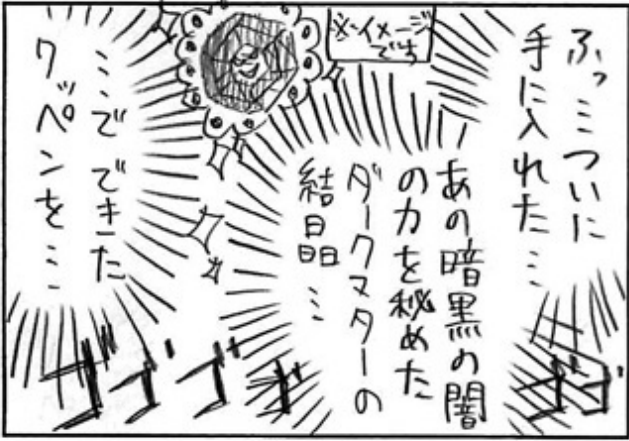 ふっ…ついに
手に入れた…
※イメージ
でち
あの暗黒の闇
の力を秘めた
ダークマターの
結晶…
…で できた
グッペンを…
ゴゴゴゴゴ